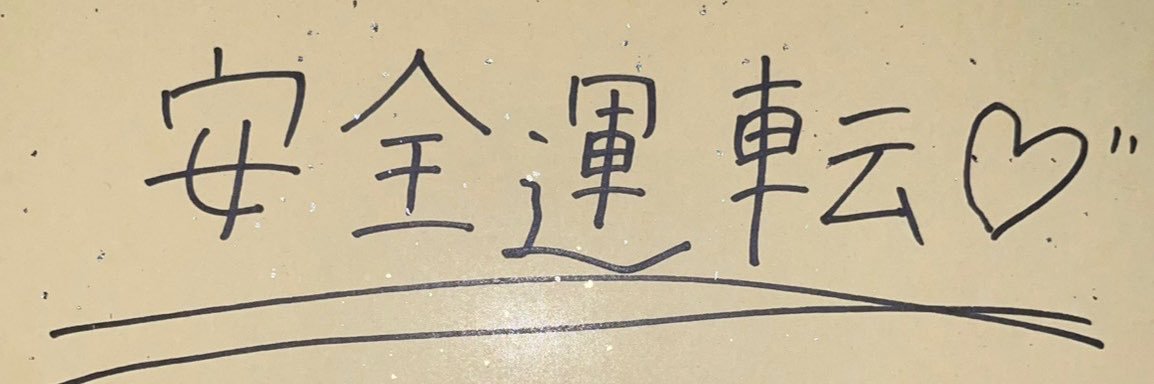 安全運転♡"